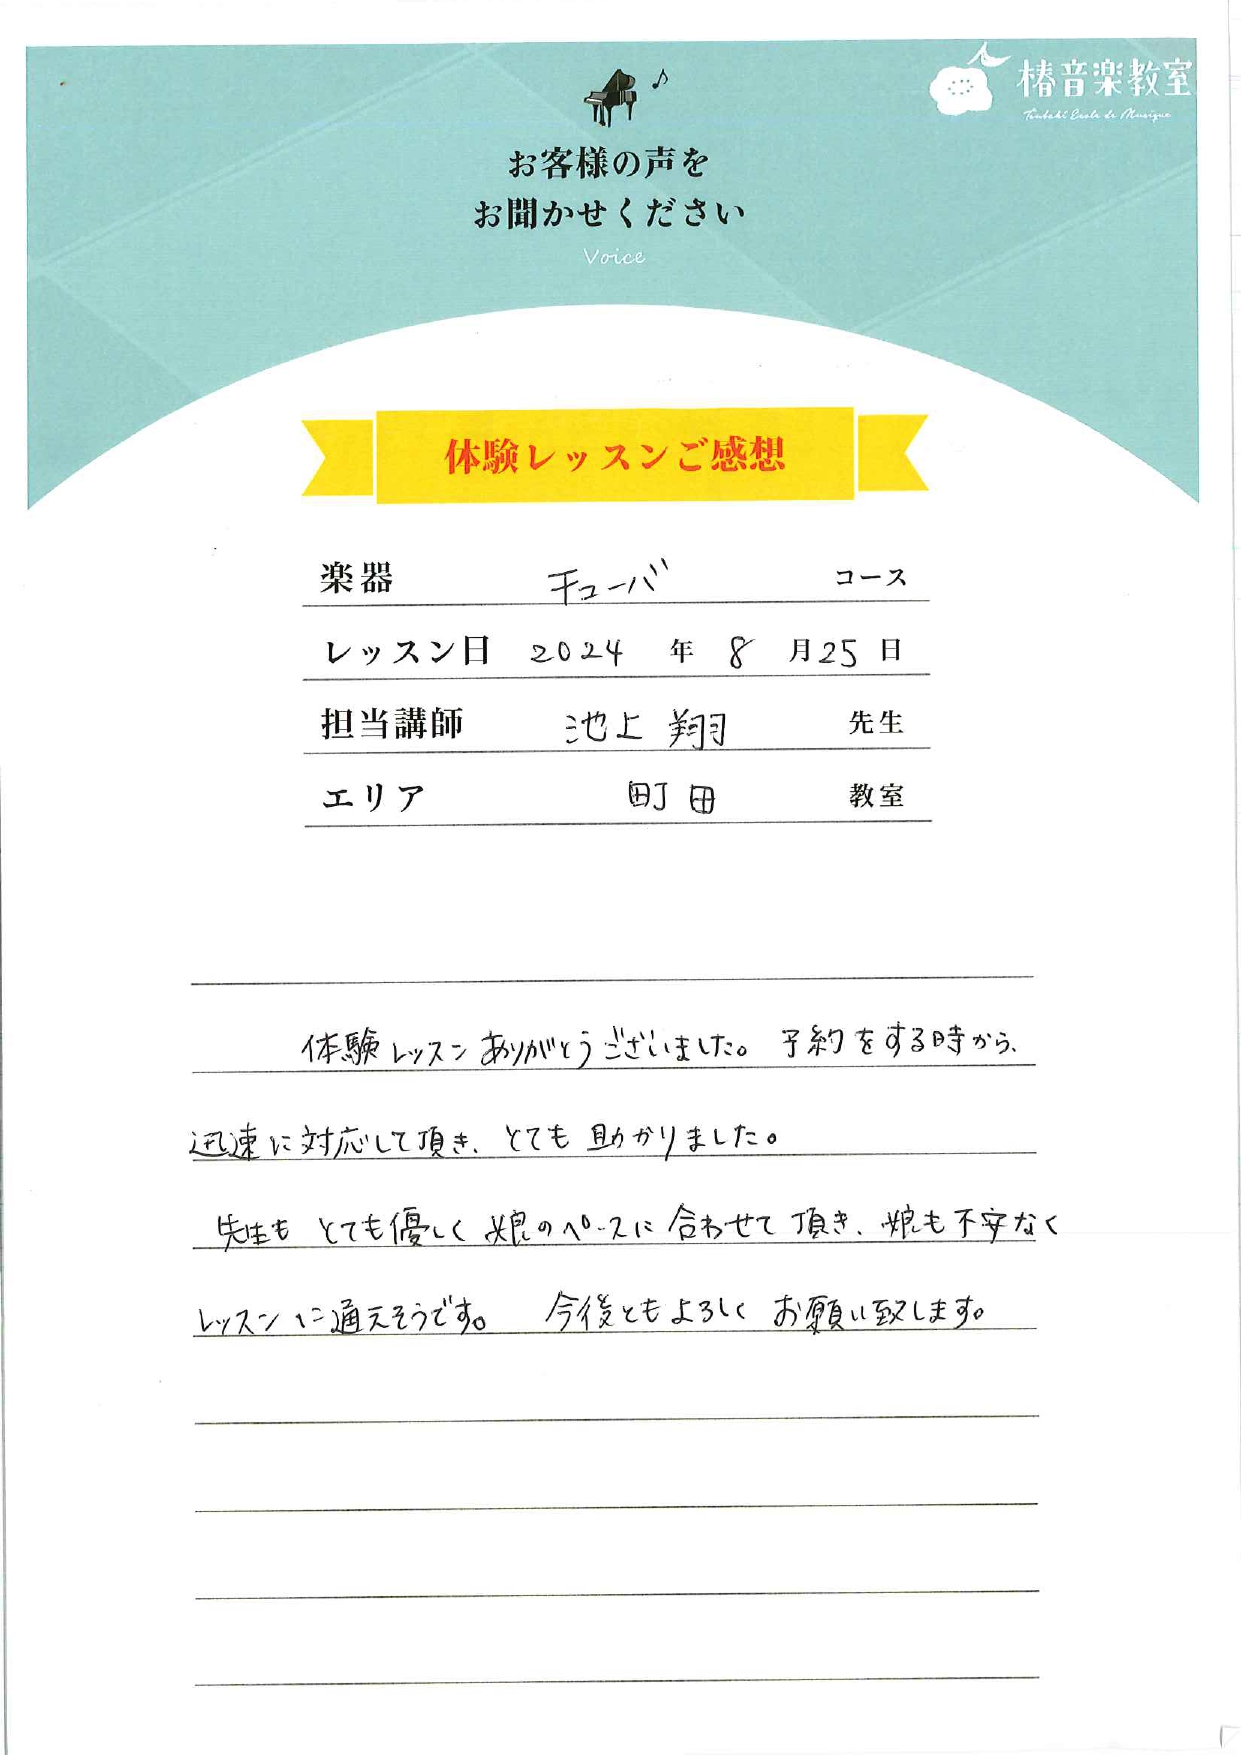 椿音楽教室
Tsubaki Ecole de Musique
お客様の声を
お聞かせください
Voice
体験レッスンご感想
楽器 チューバ コース
レッスン日 2024 年 8 月 25 日
担当講師 池上 翔 先生
エリア 町田 教室
体験レッスンありがとうございました。予約をする時から、
迅速に対応して頂き、とても助かりました。
先生もとても優しく娘のペースに合わせて頂き、娘も不安なく
レッスンに通えそうです。 今後ともよろしくお願い致します。